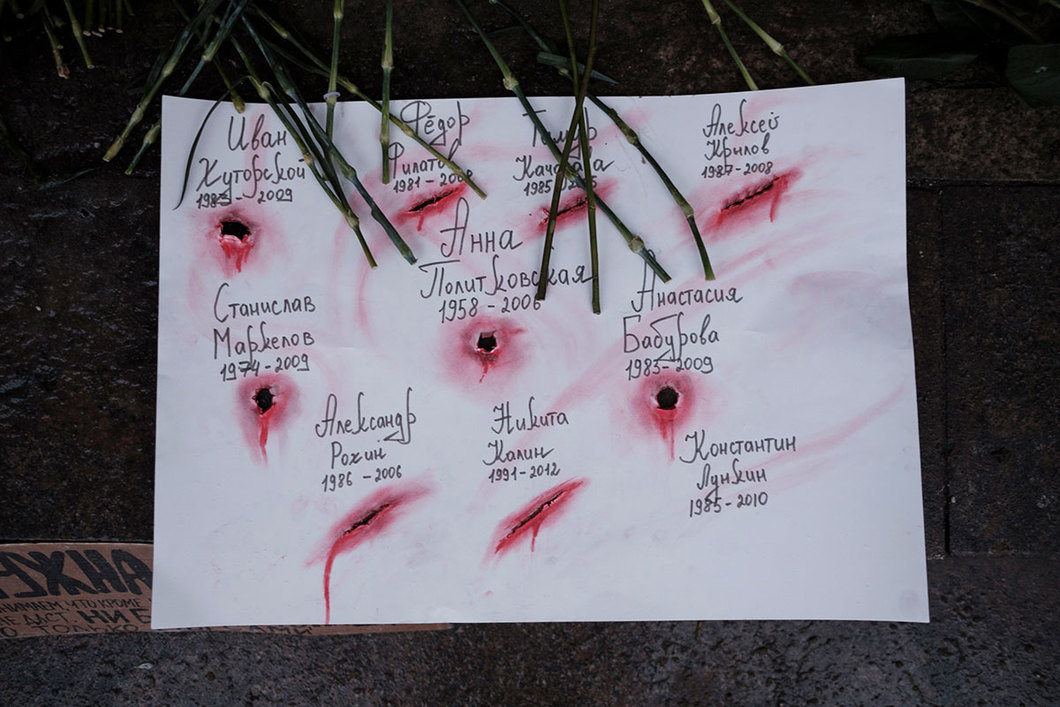 Иван
Хуторской
1983 - 2009
Фёдор
Филатов
1981 - 2008
Тимур
Качарава
1985
Алексей
Крылов
1987 - 2008
Анна
Политковская
1958 - 2006
Станислав
Маркелов
1974 - 2009
Анастасия
Бабурова
1983 - 2009
Александр
Рюхин
1986 - 2006
Никита
Калин
1991 - 2012
Константин
Лункин
1985 - 2010
УЖНА
КРОМЕ
НЕ ДАСТ НИ
ТОЛЬКО